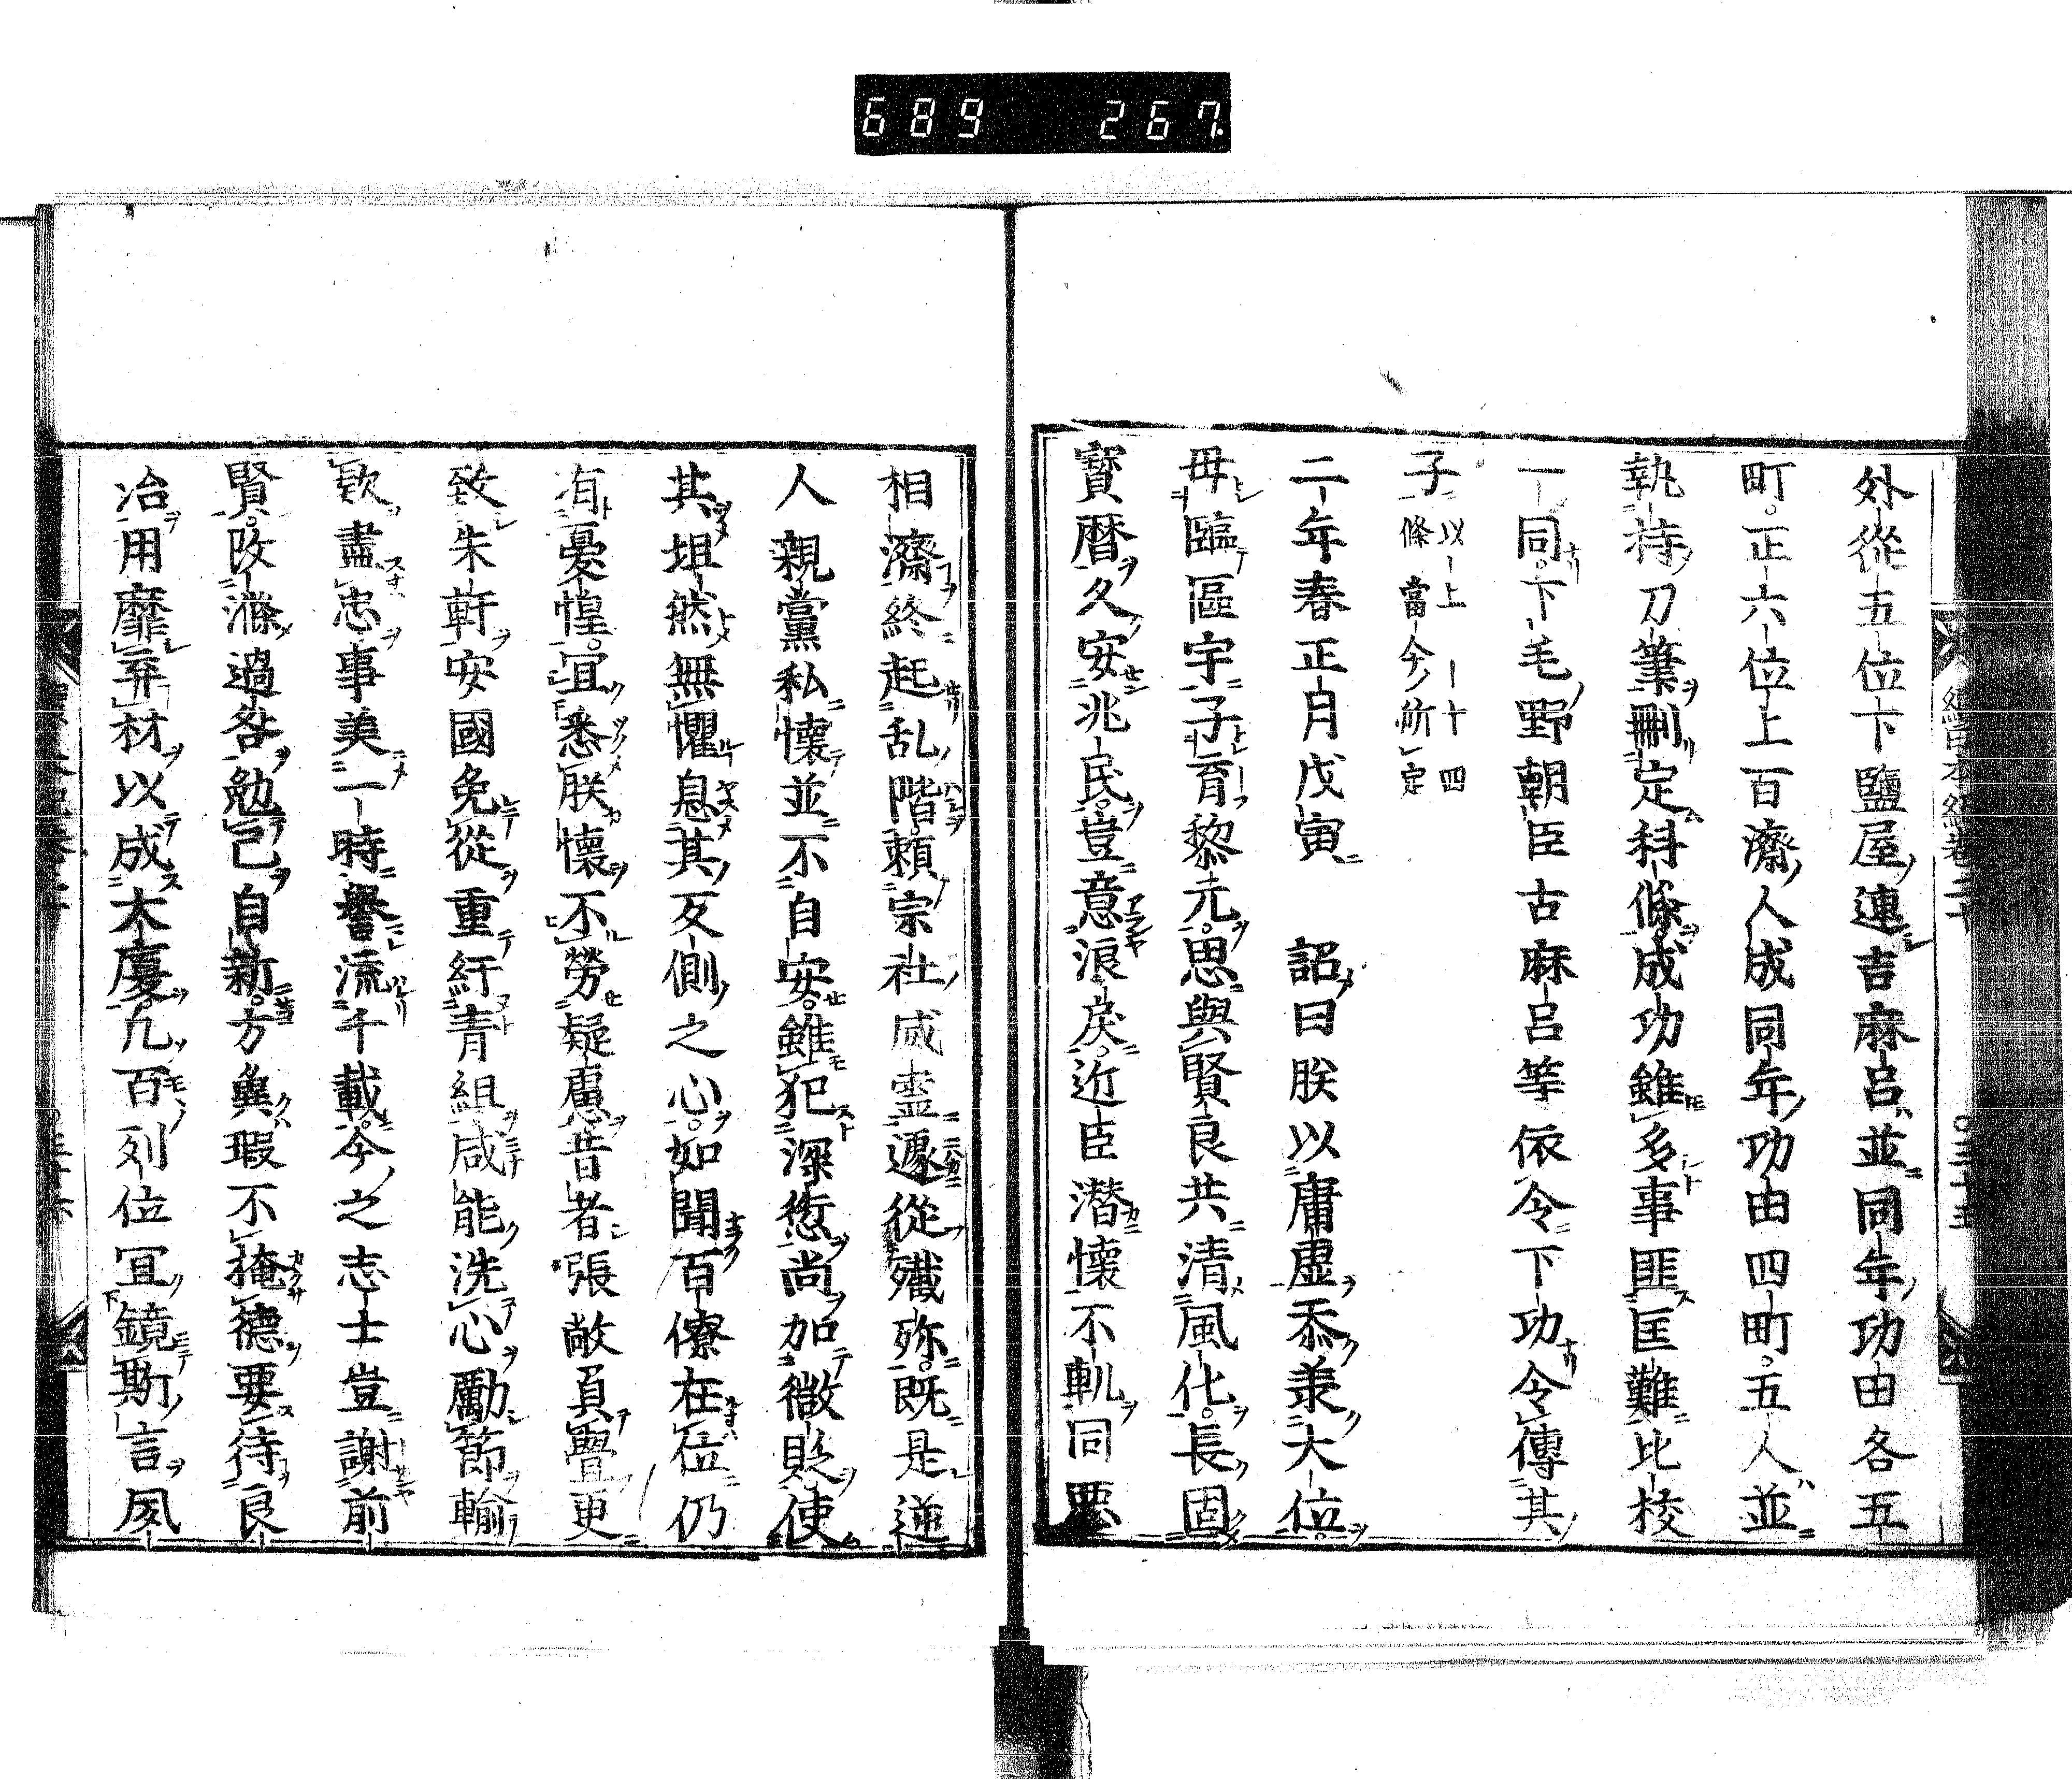 689 267
外從五位下鹽屋連吉麻呂並同年功田各五
町。正六位上百濟人成同年功田四町。五人並
執持刀筆刪定科條成功雖多事匪匡難比校
一同。下毛野朝臣古麻呂等依令下功令傳其
子以上一十四
條當今所定
二年春正月戊寅 詔曰朕以庸虛忝兼大位。
毋臨區宇子育黎元。思與賢良共清風化。長固
寶曆久安兆民。豈意浪戾。近臣潛懷不軌同惡
相濟終起乱階。頼宗社威靈遽從殲殄。既是逆
人親黨私懷並不自安。雖犯深愆尚加微貶使
其坦然無懼息其反側之心。如聞百僚在位仍
有憂惶。宜悉朕懷不勞疑慮昔者張敞負釁更
致朱軒安國免從重紆青組咸能洗心勵節輸
欵盡忠事美一時譽流千載。今之志士豈謝前
賢。改滌過咎勉己自新。方與瑕不掩德要待良
冶用靡弃材以成大廈。凡百列位宜鏡斯言夙